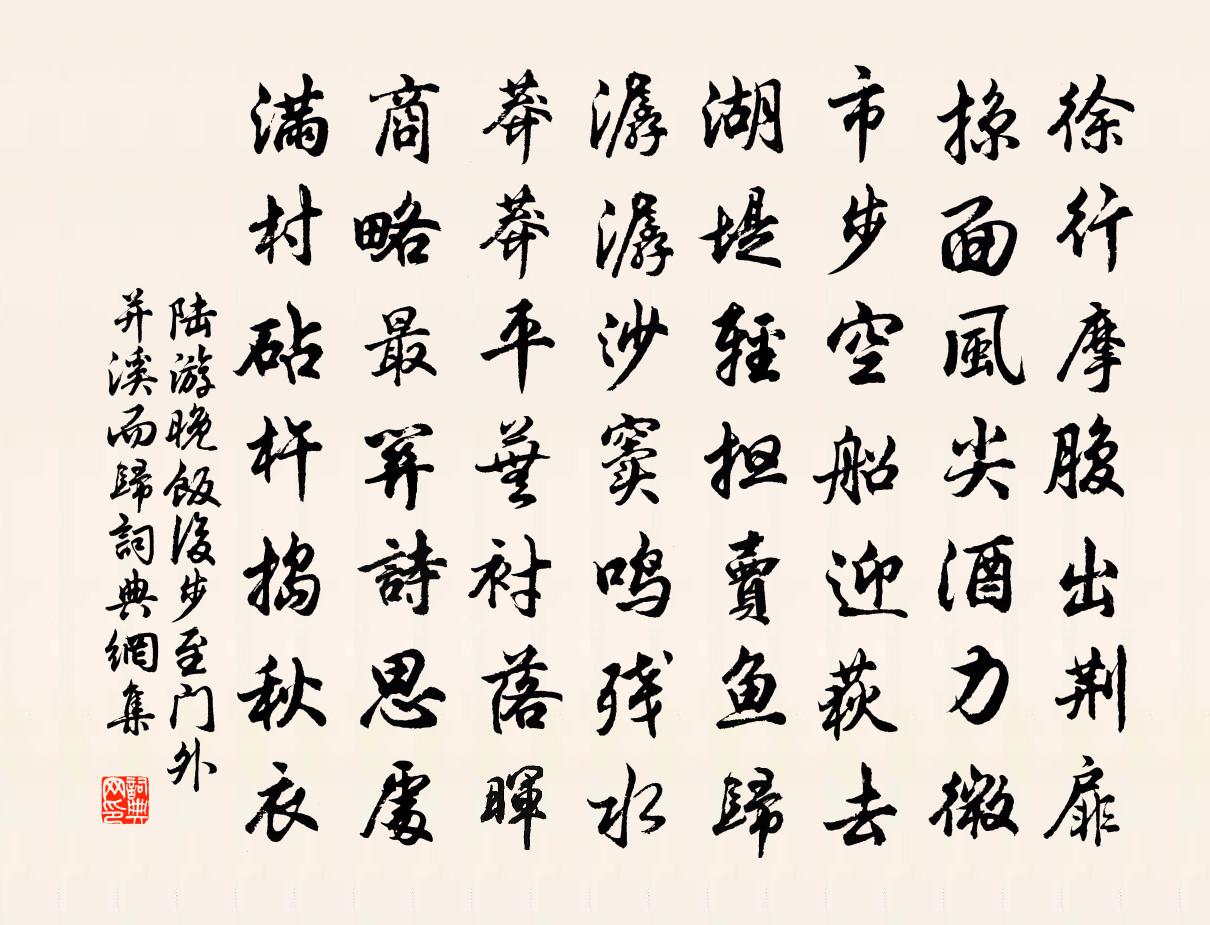 徐行摩腹出荆扉
掠面風尖酒力微
市步空船迎荻去
湖堤輕担賣鱼歸
潺潺沙窦鸣残水
莽莽平蕪衬落暉
商略最関詩思處
满村砧杵搗秋衣
陆游晚飯後步至门外
并溪而歸詞典網集
詞典网印